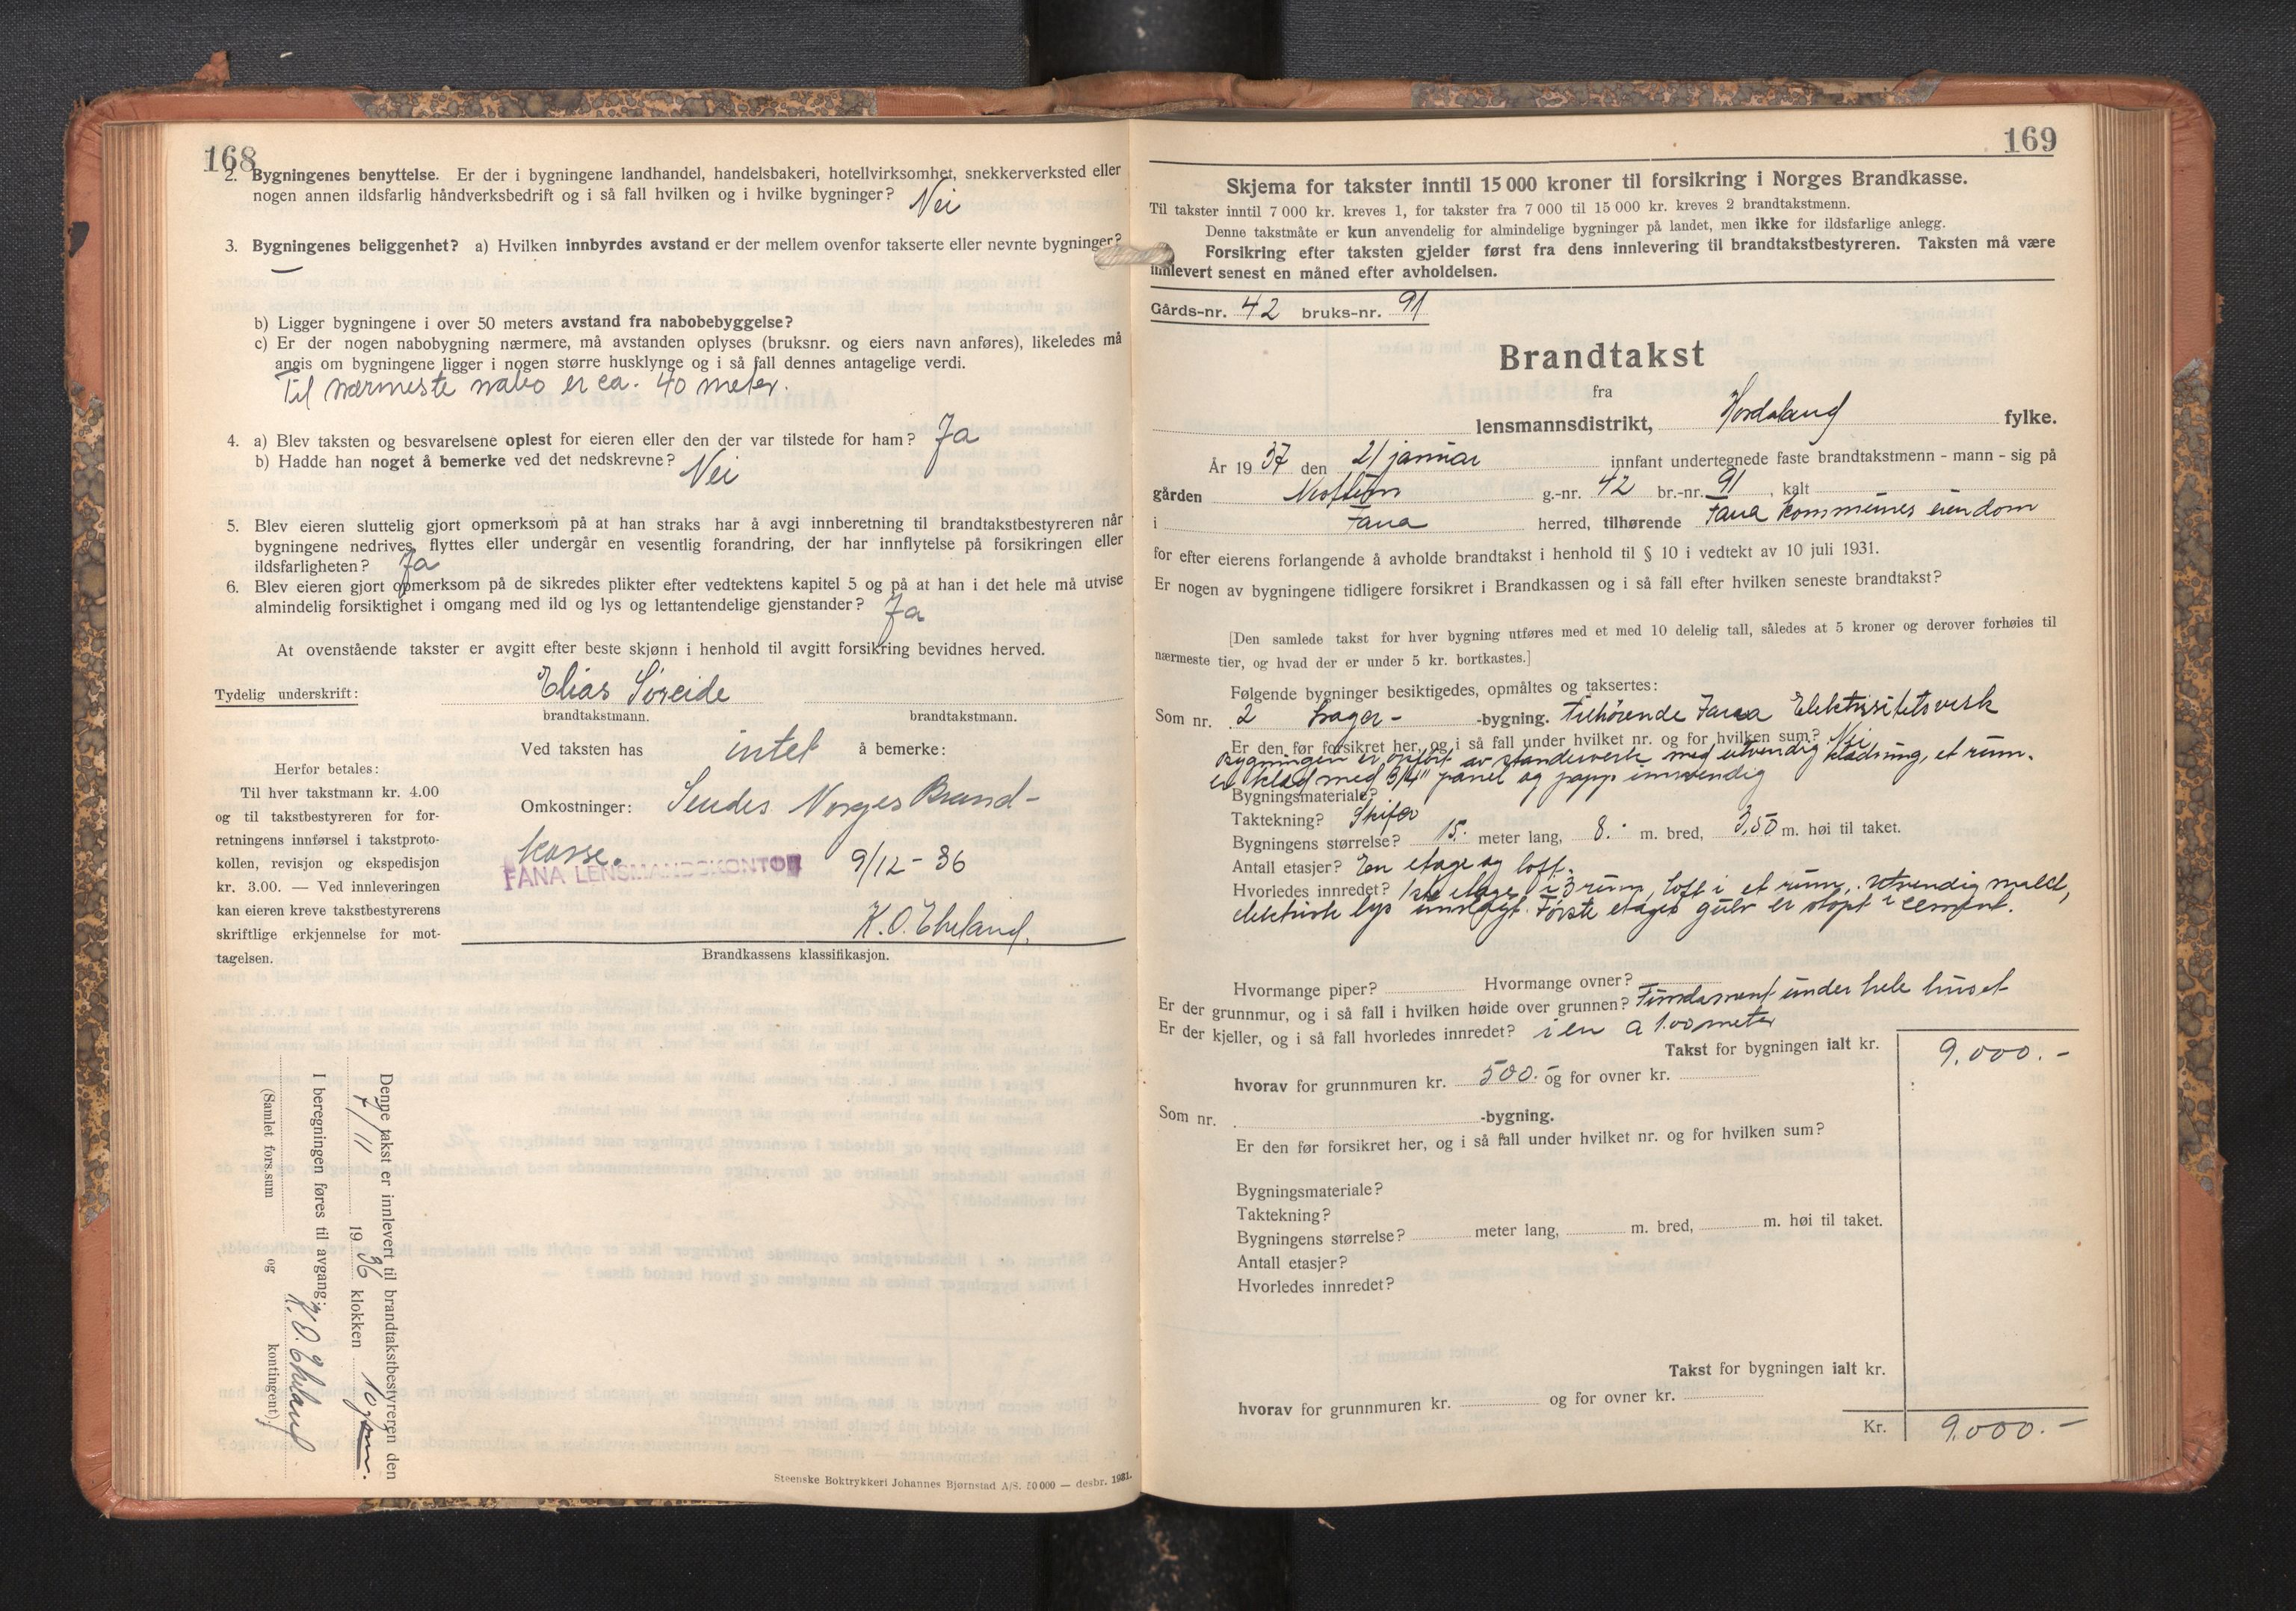 168
2. Bygningenes benyttelse. Er der i bygningene landhandel, handelsbakeri, hotellvirksomhet, snekkerverksted eller
nogen annen ildsfarlig håndverksbedrift og i så fall hvilken og i hvilke bygninger? Nei
3. Bygningenes beliggenhet? a) Hvilken innbyrdes avstand er der mellem ovenfor takserte eller nevnte bygninger?
—
b) Ligger bygningene i over 50 meters avstand fra nabobebyggelse?
c) Er der nogen nabobygning nærmere, må avstanden oplyses (bruksnr. og eiers navn anføres), likeledes må
angis om bygningene ligger i nogen større husklynge og i så fall dennes antagelige verdi.
Til nærmeste nabo er ca. 40 meter.
4. a) Blev taksten og besvarelsene oplest for eieren eller den der var tilstede for ham? Ja
b) Hadde han noget å bemerke ved det nedskrevne? Nei
5. Blev eieren sluttelig gjort opmerksom på at han straks har å avgi innberetning til brandtakstbestyreren når
bygningene nedrives, flyttes eller undergår en vesentlig forandring, der har innflytelse på forsikringen eller
ildsfarligheten? Ja
6. Blev eieren gjort opmerksom på de sikredes plikter efter vedtektens kapitel 5 og på at han i det hele må utvise
almindelig forsiktighet i omgang med ild og lys og lettantendelige gjenstander? Ja
At ovenstående takster er avgitt efter beste skjønn i henhold til avgitt forsikring bevidnes herved.
Tydelig underskrift: Elias Søreide
brandtakstmann. brandtakstmann.
Ved taksten has intet å bemerke:
Herfor betales:
Til hver takstmann kr. 4.00
og til takstbestyreren for for-
retningens innførsel i takstproto-
kollen, revisjon og ekspedisjon
kr. 3.00. — Ved innleveringen
kan eieren kreve takstbestyrerens
skriftlige erkjennelse for mot-
tagelsen.
Omkostninger: Sendes Norges Brand-
kasse.
FANA LENSMANDSKONTOR 9/12 - 36
K. O. Ekeland.
Brandkassens klassifikasjon.
Denne takst er innlevert til brandtakstbestyreren den
7/11 1936 klokken 10 fm.
I beregningen føres til avgang:
K. O. Ekeland
(Samlet fors.sum og kontingent)
Steenske Boktrykkeri Johannes Bjørnstad A/S. 50 000 — desbr. 1931.
169
Skjema for takster inntil 15 000 kroner til forsikring i Norges Brandkasse.
Til takster inntil 7 000 kr. kreves 1, for takster fra 7 000 til 15 000 kr. kreves 2 brandtakstmenn.
Denne takstmåte er kun anvendelig for almindelige bygninger på landet, men ikke for ildsfarlige anlegg.
Forsikring efter taksten gjelder først fra dens innlevering til brandtakstbestyreren. Taksten må være
innlevert senest en måned efter avholdelsen.
Gårds-nr. 42 bruks-nr. 91
Brandtakst
fra
lensmannsdistrikt, Hordaland fylke.
År 1937 den 21 januar innfant undertegnede faste brandtakstmenn - mann - sig på
gården g.-nr. 42 br.-nr. 91, kalt
i Fana herred, tilhørende Fana kommunes eiendom
for efter eierens forlangende å avholde brandtakst i henhold til § 10 i vedtekt av 10 juli 1931.
Er nogen av bygningene tidligere forsikret i Brandkassen og i så fall efter hvilken seneste brandtakst?
[Den samlede takst for hver bygning utføres med et med 10 delelig tall, således at 5 kroner og derover forhøies til
nærmeste tier, og hvad der er under 5 kr. bortkastes.]
Følgende bygninger besiktigedes, opmåltes og taksertes:
Som nr. 2 Lager- -bygning. Tilhørende Fana Elektrisitetsverk
Er den før forsikret her, og i så fall under hvilket nr. og for hvilken sum? Nei
Bygningen er opført av standerverk med utvendig kledning, et rum.
er kled med 3/4" panel og papp innvendig
Bygningsmateriale?
Taktekning? Skifer
Bygningens størrelse? 15. meter lang, 8. m. bred, 3,50 m. høi til taket.
Antall etasjer? En etage og loft.
Hvorledes innredet? 1ste etage i 3 rum, loft i et rum, utvendig malt,
elektrisk lys innlagt. Første etages gulv er støpt i cement.
Hvormange piper? Hvormange ovner?
Er der grunnmur, og i så fall i hvilken høide over grunnen? Fundament under hele huset
Er der kjeller, og i så fall hvorledes innredet? i en a 1.00 meter
Takst for bygningen ialt kr. 9.000.-
hvorav for grunnmuren kr. 500.- og for ovner kr.
Som nr. -bygning.
Er den før forsikret her, og i så fall under hvilket nr. og for hvilken sum?
Bygningsmateriale?
Taktekning?
Bygningens størrelse? meter lang, m. bred, m. høi til taket.
Antall etasjer?
Hvorledes innredet?
Takst for bygningen ialt kr.
hvorav for grunnmuren kr. og for ovner kr.
Kr. 9.000.-